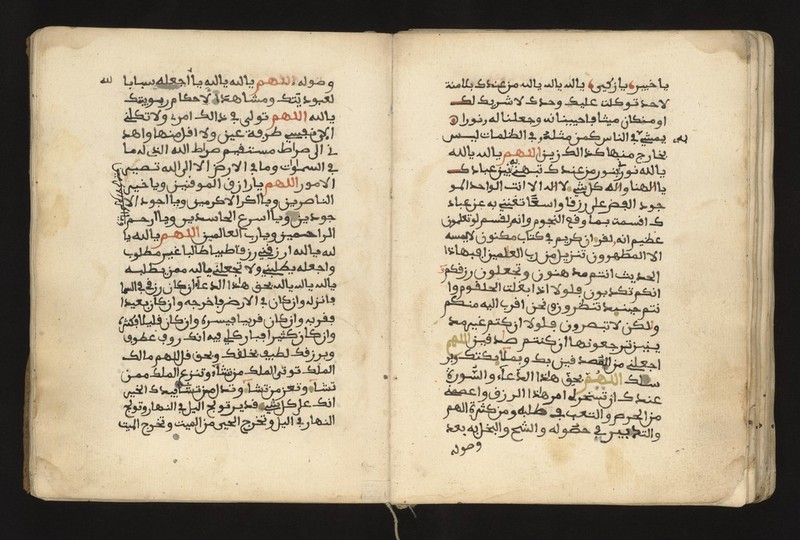 يا خبير يا زكي يا الله يا الله يا الله من عندك بلا منة
لاحد توكلت عليك وحدك لا شريك لك
او من كان ميتا فاحييناه وجعلنا له نورا
يمشي في الناس كمن مثله في الظلمات ليس
بخارج منها كذالك زين اللهم يا الله يا الله
يا الله نور من عندك بين عبادك
يا الهنا واله كل شيء لا اله الا انت الواحد المو
جود افض علي رزقا واسعا تغنني به عن عباد
ك اقسمت بمواقع النجوم وانه لقسم لو تعلمون
عظيم انه لقران كريم في كتاب مكنون لا يمسه
الا المطهرون تنزيل من رب العلمين افبهاذا
الحديث انتم مدهنون وتجعلون رزقكم
انكم تكذبون فلولا اذا بلغت الحلقوم وا
نتم حينئذ تنظرون نحن اقرب اليه منكم
ولكن لا تبصرون فلولا ان كنتم غير مد
ينين ترجعونها ان كنتم صدقين اللهم
اجعلني من المصدقين بك وبملايكتك ور
سلك اللهم بحق هاذا الدعاء والسورة
عندك ان تسخر لي امر هذا الرزق واعصمني
من الحرص والتعب في طلبه ومن كثرة الهم
والتدبير في حصوله والشح والبخل به بعد
وصوله
وصوله اللهم يا الله يا الله يا الله اجعله سببا
لعبوديتك ومشاهدة لاحكام ربوبيتك
يا الله اللهم تولى في ذالك امري ولا تكلني
الى نفسي طرفة عين ولا اقل منها واهد
ني الى صراط مستقيم صراط الله الذي له ما
في السموات وما في الارض الا الى الله تصير
الامور اللهم يا رازق الموقنين ويا خير
الناصرين ويا اكرم الاكرمين ويا اجود الا
جودين ويا اسرع الحاسبين ويا ارحم
الراحمين ويا رب العالمين اللهم يا الله يا
الله يا الله ارزقني رزقا طيبا طالبا غير مطلوب
واجعله يطلبني ولا تجعلني يا الله ممن يطلبه
يا الله يا الله يا الله بحق هاذا الدعاء ان كان رزقي في السما
فانزله وان كان في الارض فاخرجه وان كان بعيدا
فقربه وان كان قريبا فيسره وان كان قليلا فكثره
وان كان كثيرا فبارك لي فيه انك رءوف عطوف
وبرزقك لطيف بخلقك وبحق قل اللهم مالك
الملك توتي الملك من تشاء وتنزع الملك ممن
تشاء وتعز من تشاء وتذل من تشاء بيدك الخير
انك على كل شيء قدير تولج اليل في النهار وتولج
النهار في اليل وتخرج الحي من الميت وتخرج الميت